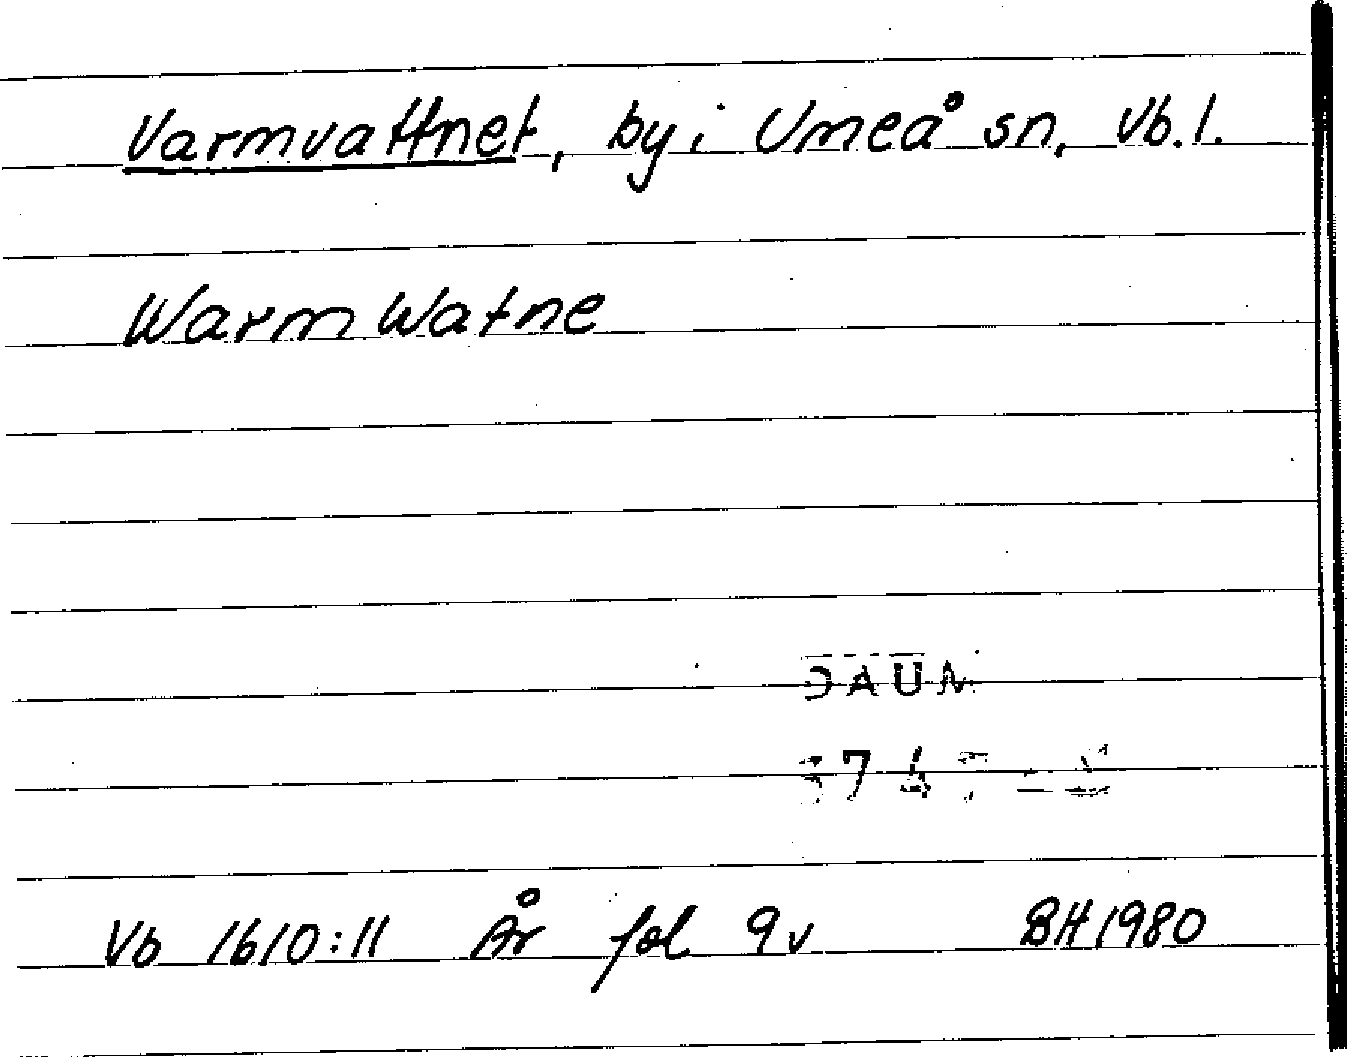 Varmvattnet, by i Umeå sn, Vb. l.
Warm Watne
DAUM
Vb 1610:11 År fol 9v BH 1980